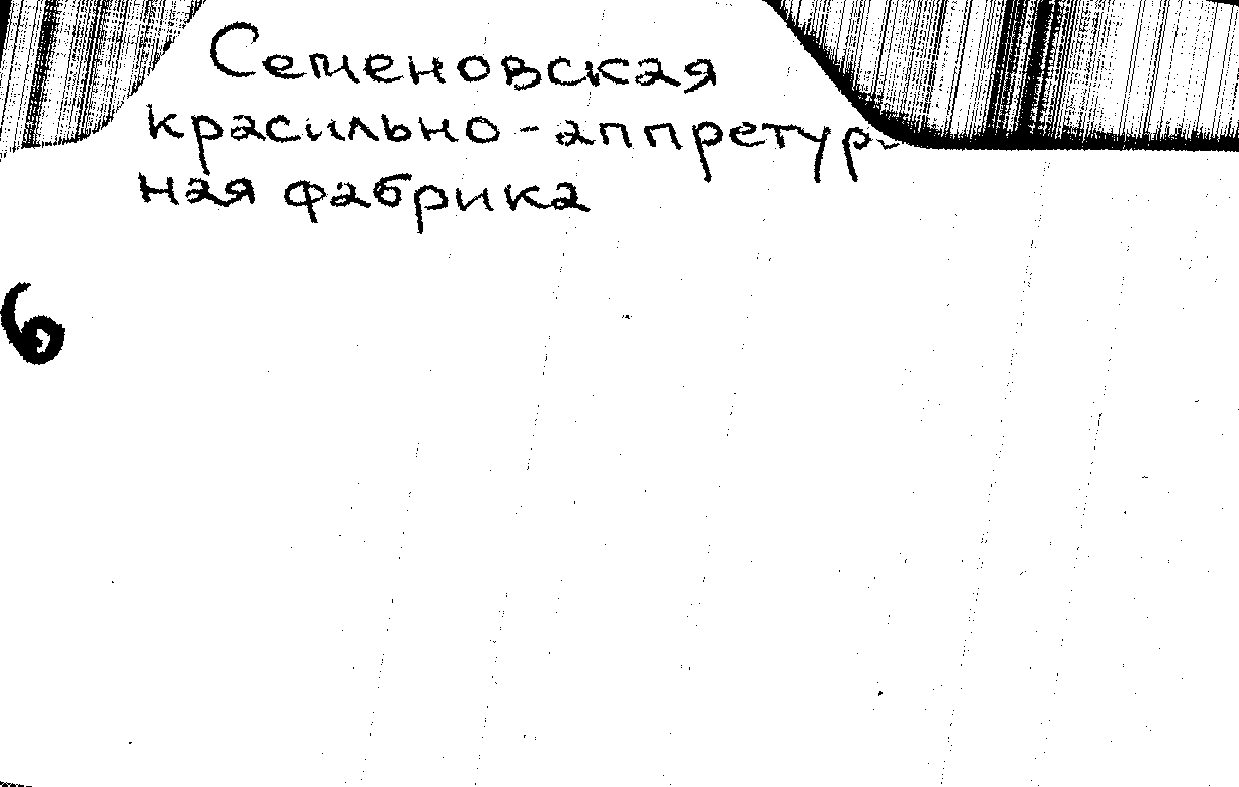 Семеновская
красильно-аппретур-
ная фабрика
6